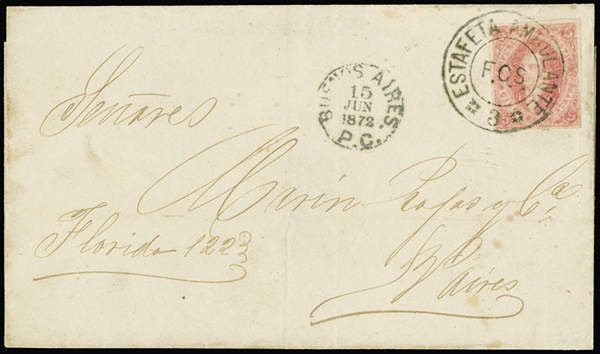 ESTAFETA AMBULANTE
F.C.S
3
BUENOS AIRES.
15
JUN
1872
P.C.
Señores
Marin Rojas y Ca.
Florida 122
B Aires